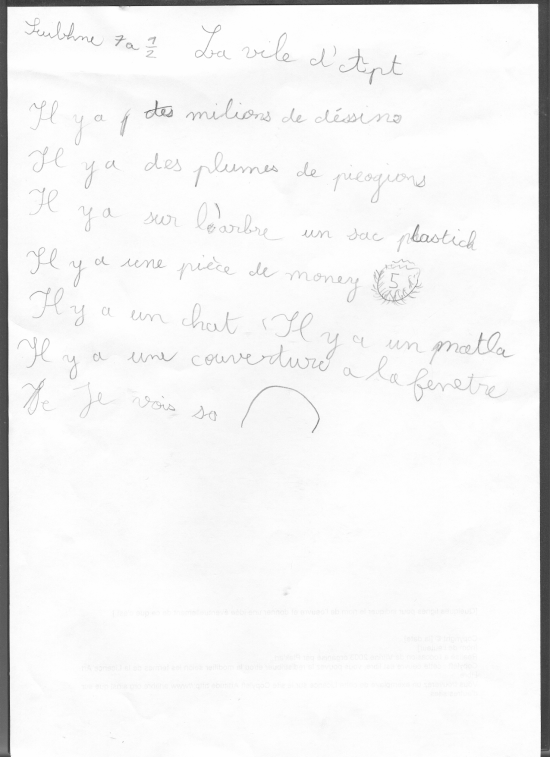 7a 1/2 La vile d'Apt
Il y a des milions de déssins
Il y a des plumes de pieogions
Il y a sur l'arbre un sac plastick
Il y a une pièce de money 5
Il y a un chat. Il y a un matla
Il y a une couverture a la fenetre
Je vois so